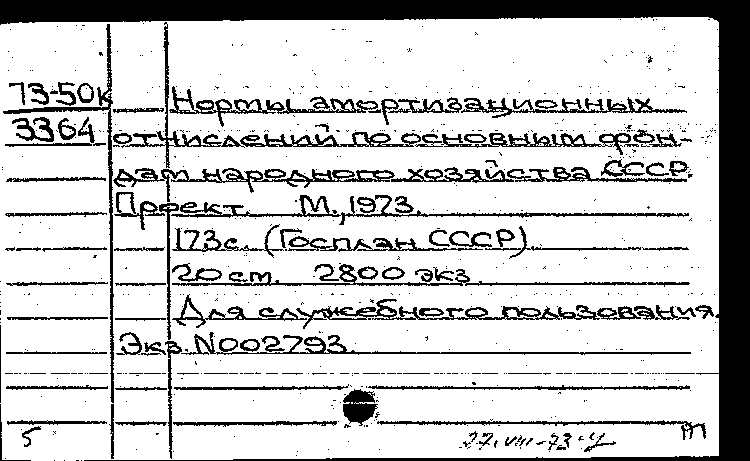 73-50к Нормы амортизационных
3364 отчислений по основным фон-
дам народного хозяйства СССР.
Проект. М., 1973.
173с. (Госплан СССР)
20 см. 2800 экз.
Для служебного пользования.
Экз. N002793.
5 27.VIII-73-